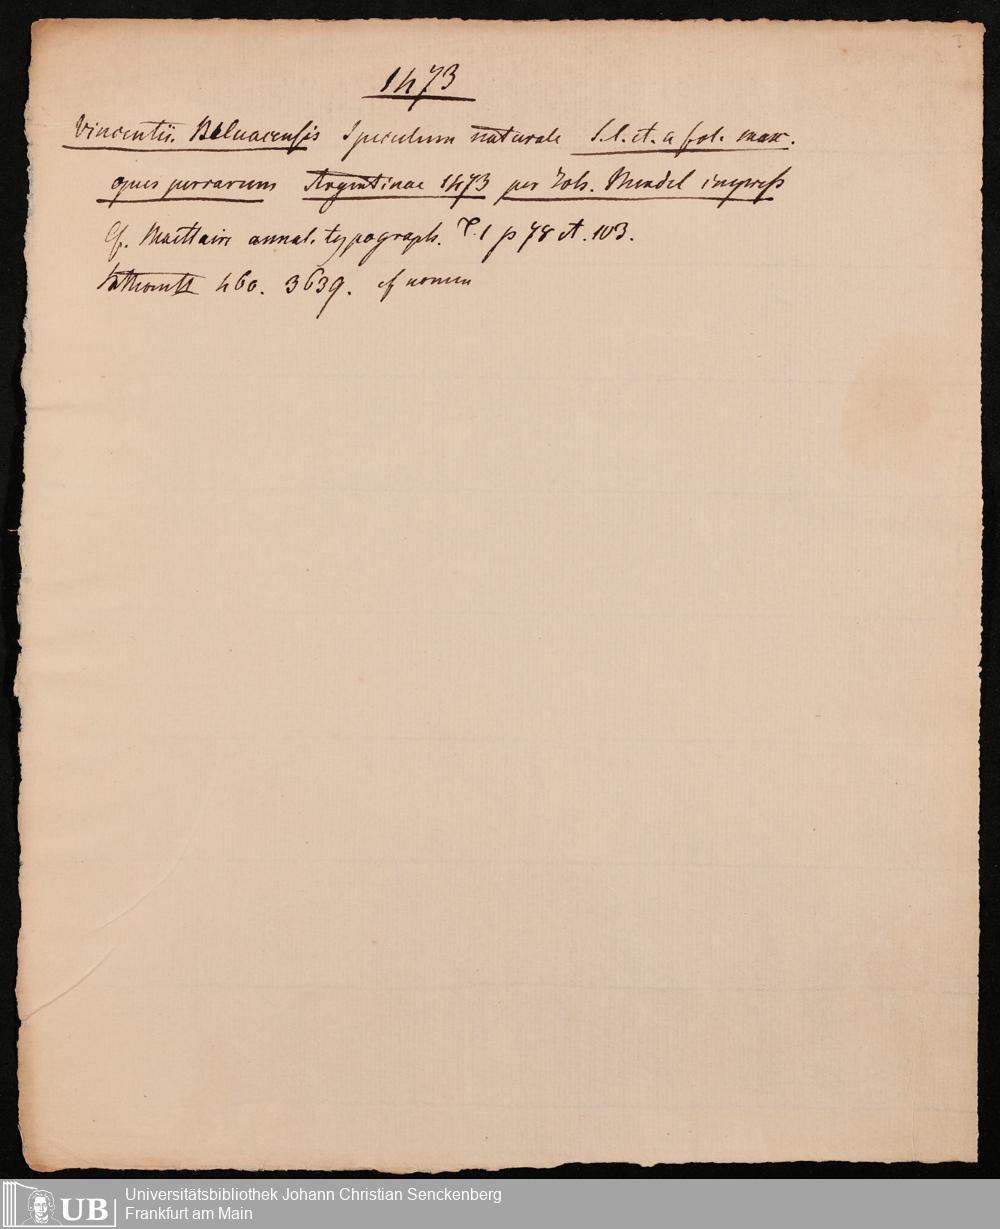 1473
Vincentii. Beluacensis Speculum naturale S. l. et. a fol. max.
opus perrarum Argentinae 1473 per Joh. Mendel impress
Cf. Maittaire annal. typograph. T. 1 p 78 et. 103.
460. 3639. cf
3
Universitätsbibliothek Johann Christian Senckenberg
UB Frankfurt am Main